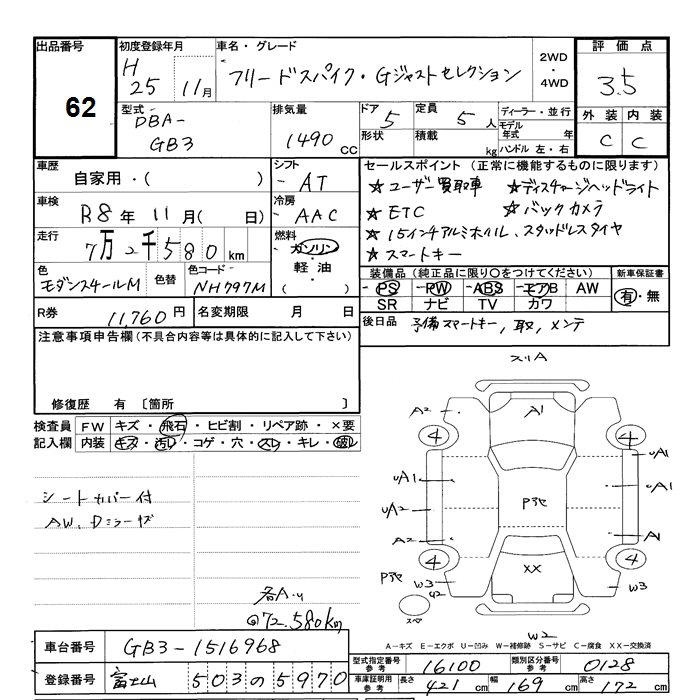 出品番号 初度登録年月 車名・グレード 2WD・4WD 評価点
62 H25 11月 フリードスパイク・Gジャストセレクション 3.5
型式 DBA-GB3 排気量 1490 CC ドア 5 定員 5人 ディーラー・並行 外装 内装
形状 積載 kg モデル年式 年 C C
ハンドル 左・右
車歴 自家用・( ) シフト AT セールスポイント(正常に機能するものに限ります)
車検 R8年 11月( 日) 冷房 AAC ☆ユーザー買取車 ☆ディスチャージヘッドライト
☆ETC ☆バックカメラ
走行 7万2千580km 燃料 ガソリン・軽油・( ) ☆15インチアルミホイル、スタッドレスタイヤ
☆スマートキー
色 モダンスチールM 色替 色コード NH797M 装備品(純正品に限り○をつけてください) 新車保証書
PS PW ABS エアB AW 有・無
SR ナビ TV カワ
R券 11760円 名変期限 月 日 後日品 予備スマートキー, 取, メンテ
注意事項申告欄(不具合内容等は具体的に記入して下さい)
修復歴 有 〔箇所 〕
検査員記入欄 FW キズ・飛石・ヒビ割・リペア跡・×要
内装 キズ・汚レ・コゲ・穴・スレ・キレ・破レ
スリA
A2 A1
4 4
uA1 uA1
uA1
uA2 Pアセ
A2 A1
4 4
Pアセ W3 XX W3
42
スペア
W2
シートカバー付
AW、Dミラーキズ
各A.u
@72.580km
A-キズ E-エクボ U-凹み W-補修跡 S-サビ C-腐食 XX-交換済
車台番号 GB3-1516968
登録番号 富士山 503の5970
型式指定番号参考 16100 類別区分番号参考 0128
車庫証明用参考 長さ 421 cm 幅 169 cm 高さ 172 cm